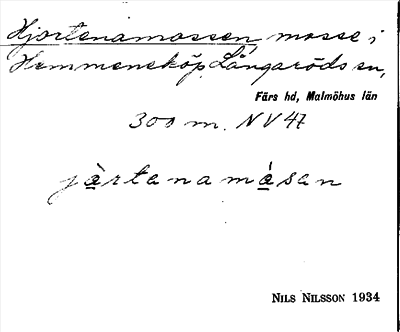 Hjortenamossen, mosse i
Hemmeneköp, Långaröds sn,
Färs hd, Malmöhus län
300 m. NV 47
järtenamåsan
NILS NILSSON 1934